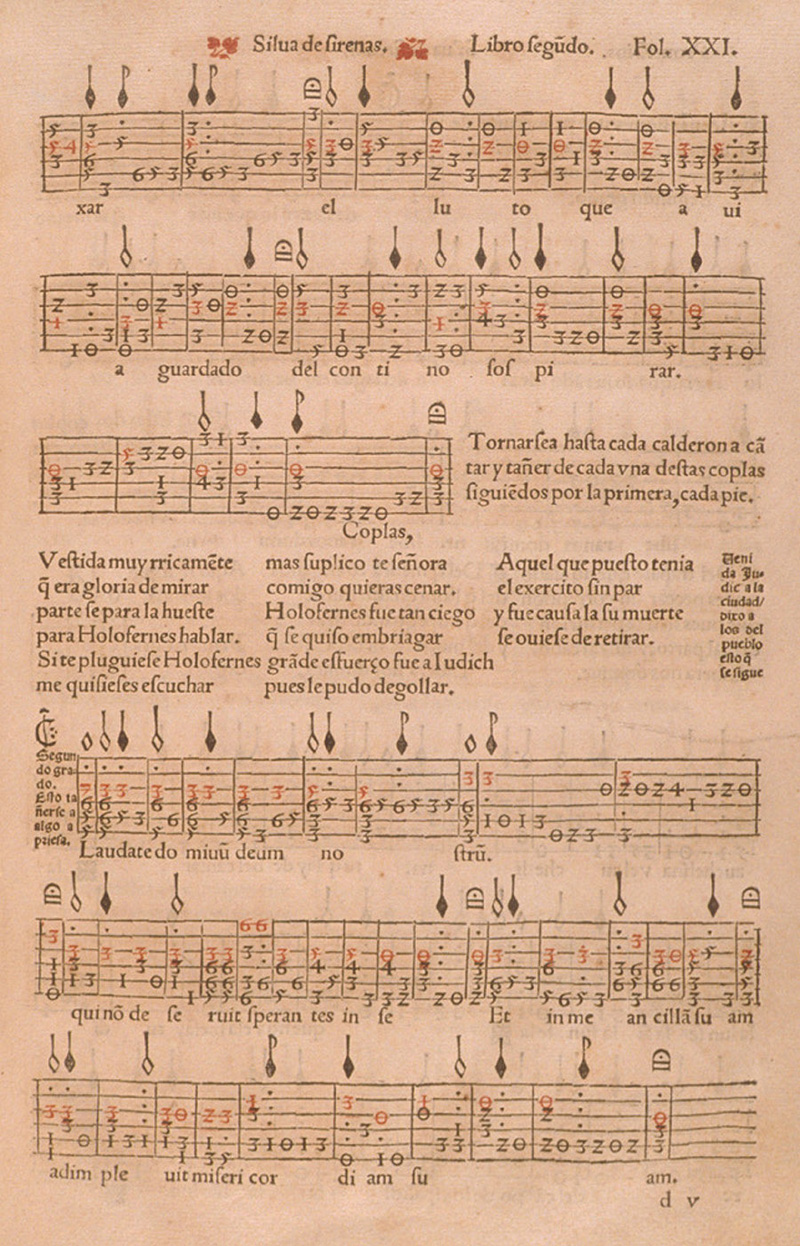 Silua de sirenas. Libro segũdo. Fol. XXI.
xar el lu to que a ui
a guardado del con ti no sos pi rar.
Tornarsea hasta cada calderon a cã
tar y tañer de cada vna destas coplas
siguiẽdos por la primera, cada pie.
Coplas,
Vestida muy rricamẽte
q̃ era gloria de mirar
parte se para la hueste
para Holofernes hablar.
Si te pluguiese Holofernes
me quisieses escuchar
mas suplico te señora
comigo quieras cenar.
Holofernes fue tan ciego
q̃ se quiso embriagar
grãde esfuerço fue a Iudich
pues le pudo degollar.
Aquel que puesto tenia
el exercito sin par
y fue causa la su muerte
se ouiese de retirar.
Veni
da Ju-
dic a la
ciudad/
dixo a
los del
pueblo
esto q̃
se sigue
Segun
do gra
do.
Esto ta
ñerse a
algo a
priesa.
Laudate do miuũ deum no strũ.
qui nõ de se ruit speran tes in se Et in me an cillã su am
adim ple uit miseri cor di am su am.
d v